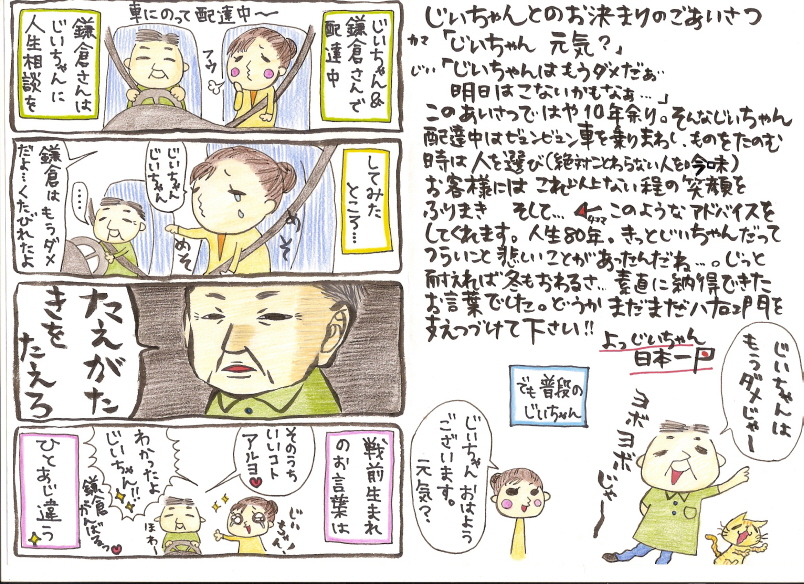 車にのって配達中〜
じいちゃん&
鎌倉さんで
配達中
鎌倉さんは
じいちゃんに
人生相談を
フゥ
してみた
ところ…
じいちゃん
じいちゃん
めそ
めそ
‥‥
鎌倉はもうダメ
だよ…くたびれたよ
たえがた
きを
たえろ
戦前生まれ
のお言葉は
ひとあじ違う
そのうち
いいコト
アルヨ♥
じぃ
ちゃん
わかったよ
じいちゃん!!
鎌倉
がんばるっ♥
ほわ〜
じいちゃんとのお決まりのごあいさつ
カマ「じいちゃん 元気?」
じい「じいちゃんはもうダメだぁ…
明日はこないかもなぁ…」
このあいさつではや10年余り。そんなじいちゃん
配達中はビュンビュン車を乗りまわし、ものをたのむ
時は人を選び(絶対ことわらない人を吟味)
お客様にはこれ以上ない程の笑顔を
ふりまき そして… このようなアドバイスを
してくれます。人生80年。きっとじいちゃんだって
つらいこと悲しいことがあったんだね…。じっと
耐えれば冬もおわるさ…素直に納得できた
お言葉でした。どうかまだまだ八右エ門を
支えつづけて下さい!!
よっじいちゃん
日本一
でも普段の
じいちゃん
じいちゃん おはよう
ございます。
元気?
じいちゃんは
もうダメじゃ〜
ヨボヨボじゃ〜